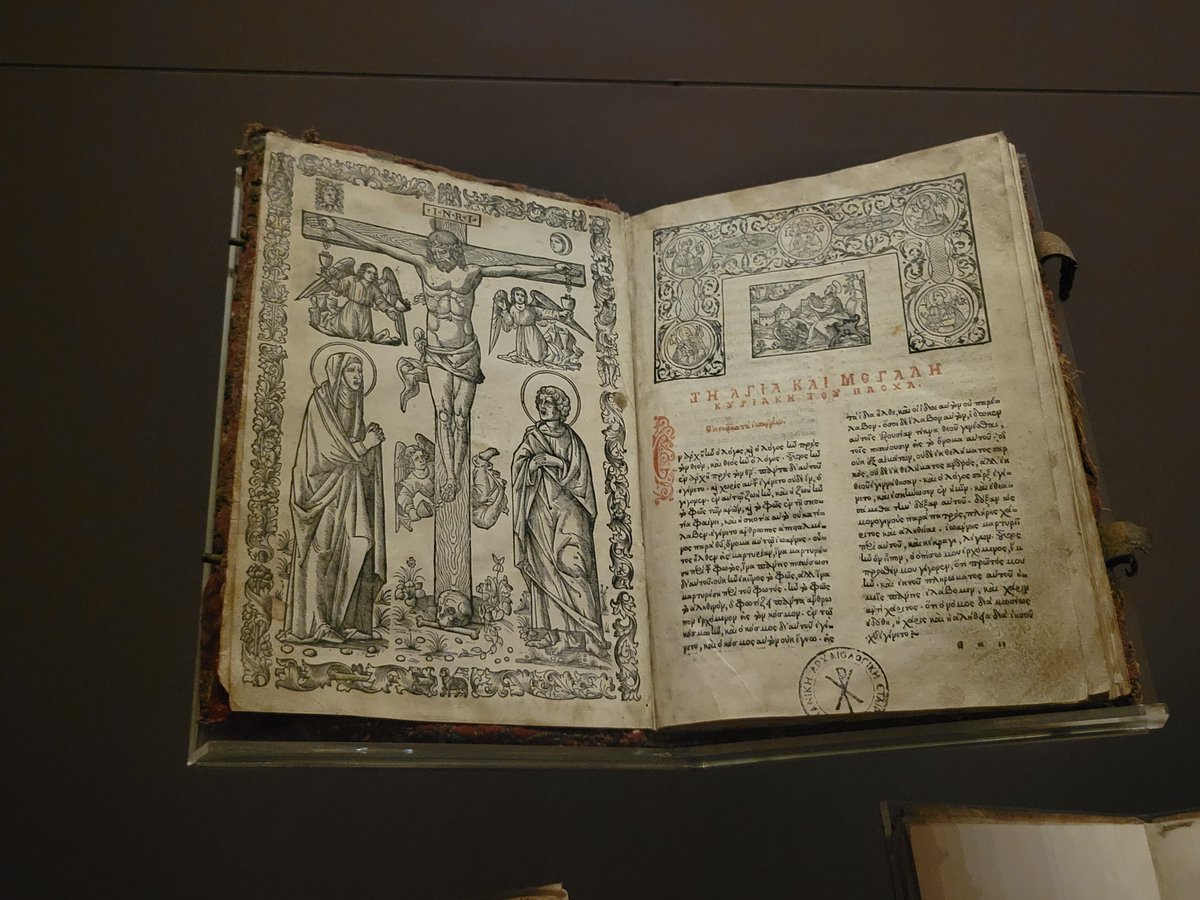 ·I·N·R·I·
ΤΗ ΑΓΙΑ ΚΑΙ ΜΕΓΑΛΗ
ΚΥΡΙΑΚΗ ΤΟΥ ΠΑΣΧΑ.
ἐκ τοῦ κατὰ ἰωάννην.
Ἐν ἀρχῇ ἦν ὁ λόγος, καὶ ὁ λόγος ἦν πρὸς
τὸν θεὸν, καὶ θεὸς ἦν ὁ λόγος. οὗτος ἦν
ἐν ἀρχῇ πρὸς τὸν θεόν. πάντα δι αὐτοῦ
ἐγένετο. καὶ χωρὶς αὐτοῦ ἐγένετο οὐδὲ ἓν, ὃ
γέγονεν. ἐν αὐτῷ ζωὴ ἦν, καὶ ἡ ζωὴ ἦν
τὸ φῶς τῶν ἀνῶν, καὶ τὸ φῶς ἐν τῇ σκο
τίᾳ φαίνει, καὶ ἡ σκοτία αὐτὸ οὐ κατέ
λαβεν. ἐγένετο ἄνθρωπος ἀπεσταλμέ
νος παρὰ θυ, ὄνομα αὐτῷ ἰωάννης. οὗ
τος ἦλθεν εἰς μαρτυρίαν, ἵνα μαρτυρή
σῃ περὶ τοῦ φωτὸς, ἵνα πάντες πιστεύσωσι
δι αὐτοῦ. οὐκ ἦν ἐκεῖνος τὸ φῶς, ἀλλ ἵνα
μαρτυρήσῃ περὶ τοῦ φωτός. ἦν τὸ φῶς
τὸ ἀληθινὸν, ὃ φωτίζει πάντα ἄνθρω
πον ἐρχόμενον εἰς τὸν κόσμον. ἐν τῷ
κόσμῳ ἦν, καὶ ὁ κόσμος δι αὐτοῦ ἐγέ
νετο, καὶ ὁ κόσμος αὐτὸν οὐκ ἔγνω. εἰς
τὰ ἴδια ἦλθε, καὶ οἱ ἴδιοι αὐτὸν οὐ παρέ
λαβον. ὅσοι δὲ ἔλαβον αὐτὸν, ἔδωκεν
αὐτοῖς ἐξουσίαν τέκνα θεοῦ γενέσθαι,
τοῖς πιστεύουσιν εἰς τὸ ὄνομα αὐτοῦ. οἳ
οὐκ ἐξ αἱμάτων, οὐδὲ ἐκ θελήματος σαρ
κὸς, οὐδὲ ἐκ θελήματος ἀνδρὸς, ἀλλ ἐκ
θεοῦ ἐγεννήθησαν. καὶ ὁ λόγος σὰρξ ἐγέ
νετο, καὶ ἐσκήνωσεν ἐν ἡμῖν. καὶ ἐθεα
σάμεθα τὴν δόξαν αὐτοῦ. δόξαν ὡς
μονογενοῦς παρὰ πατρὸς, πλήρης χά
ριτος καὶ ἀληθείας. ἰωάννης μαρτυρεῖ
περὶ αὐτοῦ, καὶ κέκραγε, λέγων. οὗτος
ἦν ὃν εἶπον, ὁ ὀπίσω μου ἐρχόμενος, ἔμ
προσθέν μου γέγονεν, ὅτι πρῶτός μου
ἦν. καὶ ἐκ τοῦ πληρώματος αὐτοῦ ἡ
μεῖς πάντες ἐλάβομεν, καὶ χάριν
ἀντὶ χάριτος. ὅτι ὁ νόμος διὰ μωσέως
ἐδόθη, ἡ χάρις καὶ ἡ ἀλήθεια διὰ ἰησοῦ
χυ ἐγένετο
ΑΡΧΑΙΟΛΟΓΙΚΗ ΕΤΑΙ